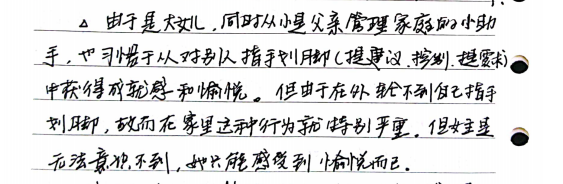 △ 由于是大女儿,同时从小是父亲管理家庭的小助
手,也习惯于从对别人指手划脚(提建议、控制、提需求)
中获得成就感和愉悦。但由于在外轮不到自己指手
划脚,故而在家里这种行为就特别严重。但女主是
无法意识不到,她只能感受到愉悦而已。